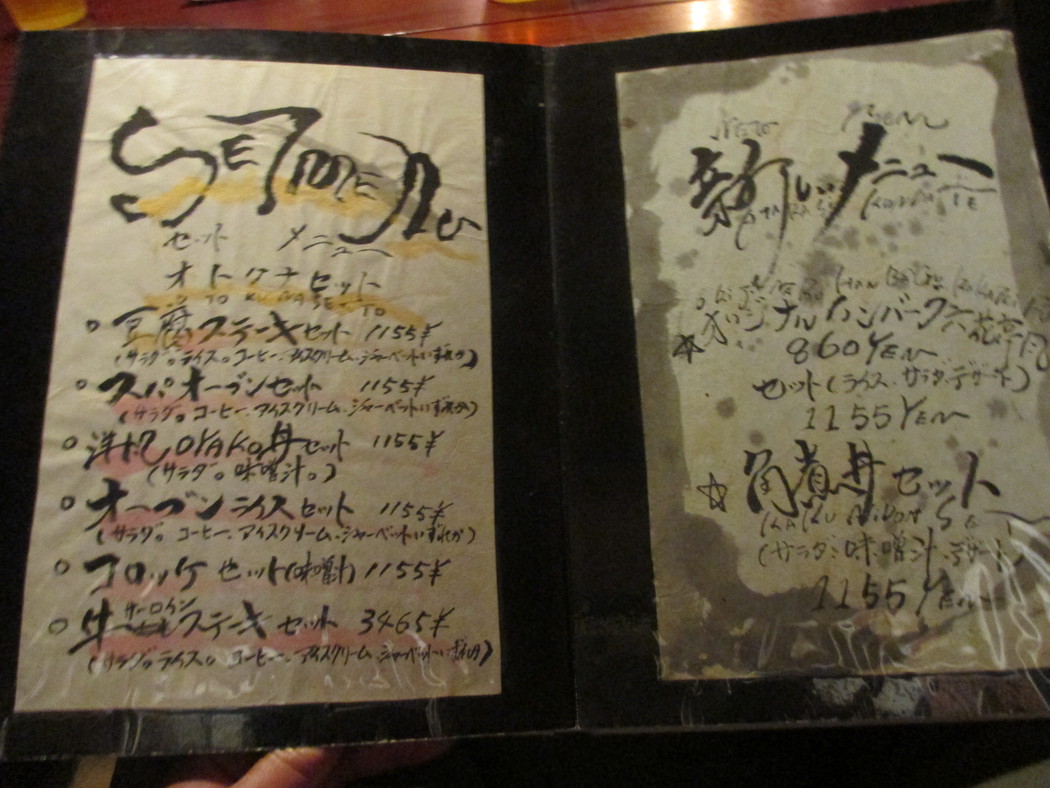 SET MENu
セット メニュー
オトクナセット
O TO KU NA SE-T TO
○ 豆腐ステーキセット 1155¥
(サラダ。ライス。コーヒー、アイスクリーム、シャーベットいずれか)
○ スパオーブンセット 1155¥
(サラダ。コーヒー、アイスクリーム、シャーベットいずれか)
○ 洋風OYAKO丼セット 1155¥
(サラダ。味噌汁。)
○ オーブンライスセット 1155¥
(サラダ。コーヒー、アイスクリーム、シャーベットいずれか)
○ コロッケセット(味噌汁) 1155¥
○ 牛サーロインステーキセット 3465¥
(サラダ。ライス。コーヒー、アイスクリーム、シャーベットいずれか)
NEW MENu
新しいメニュー
☆ オリジナルハンバーグ
860YEN
セット(ライス、サラダ、デザート)
1155YEN
☆ 角煮丼セット
KAKU NI DON SE
(サラダ、味噌汁、デザート)
1155YEN